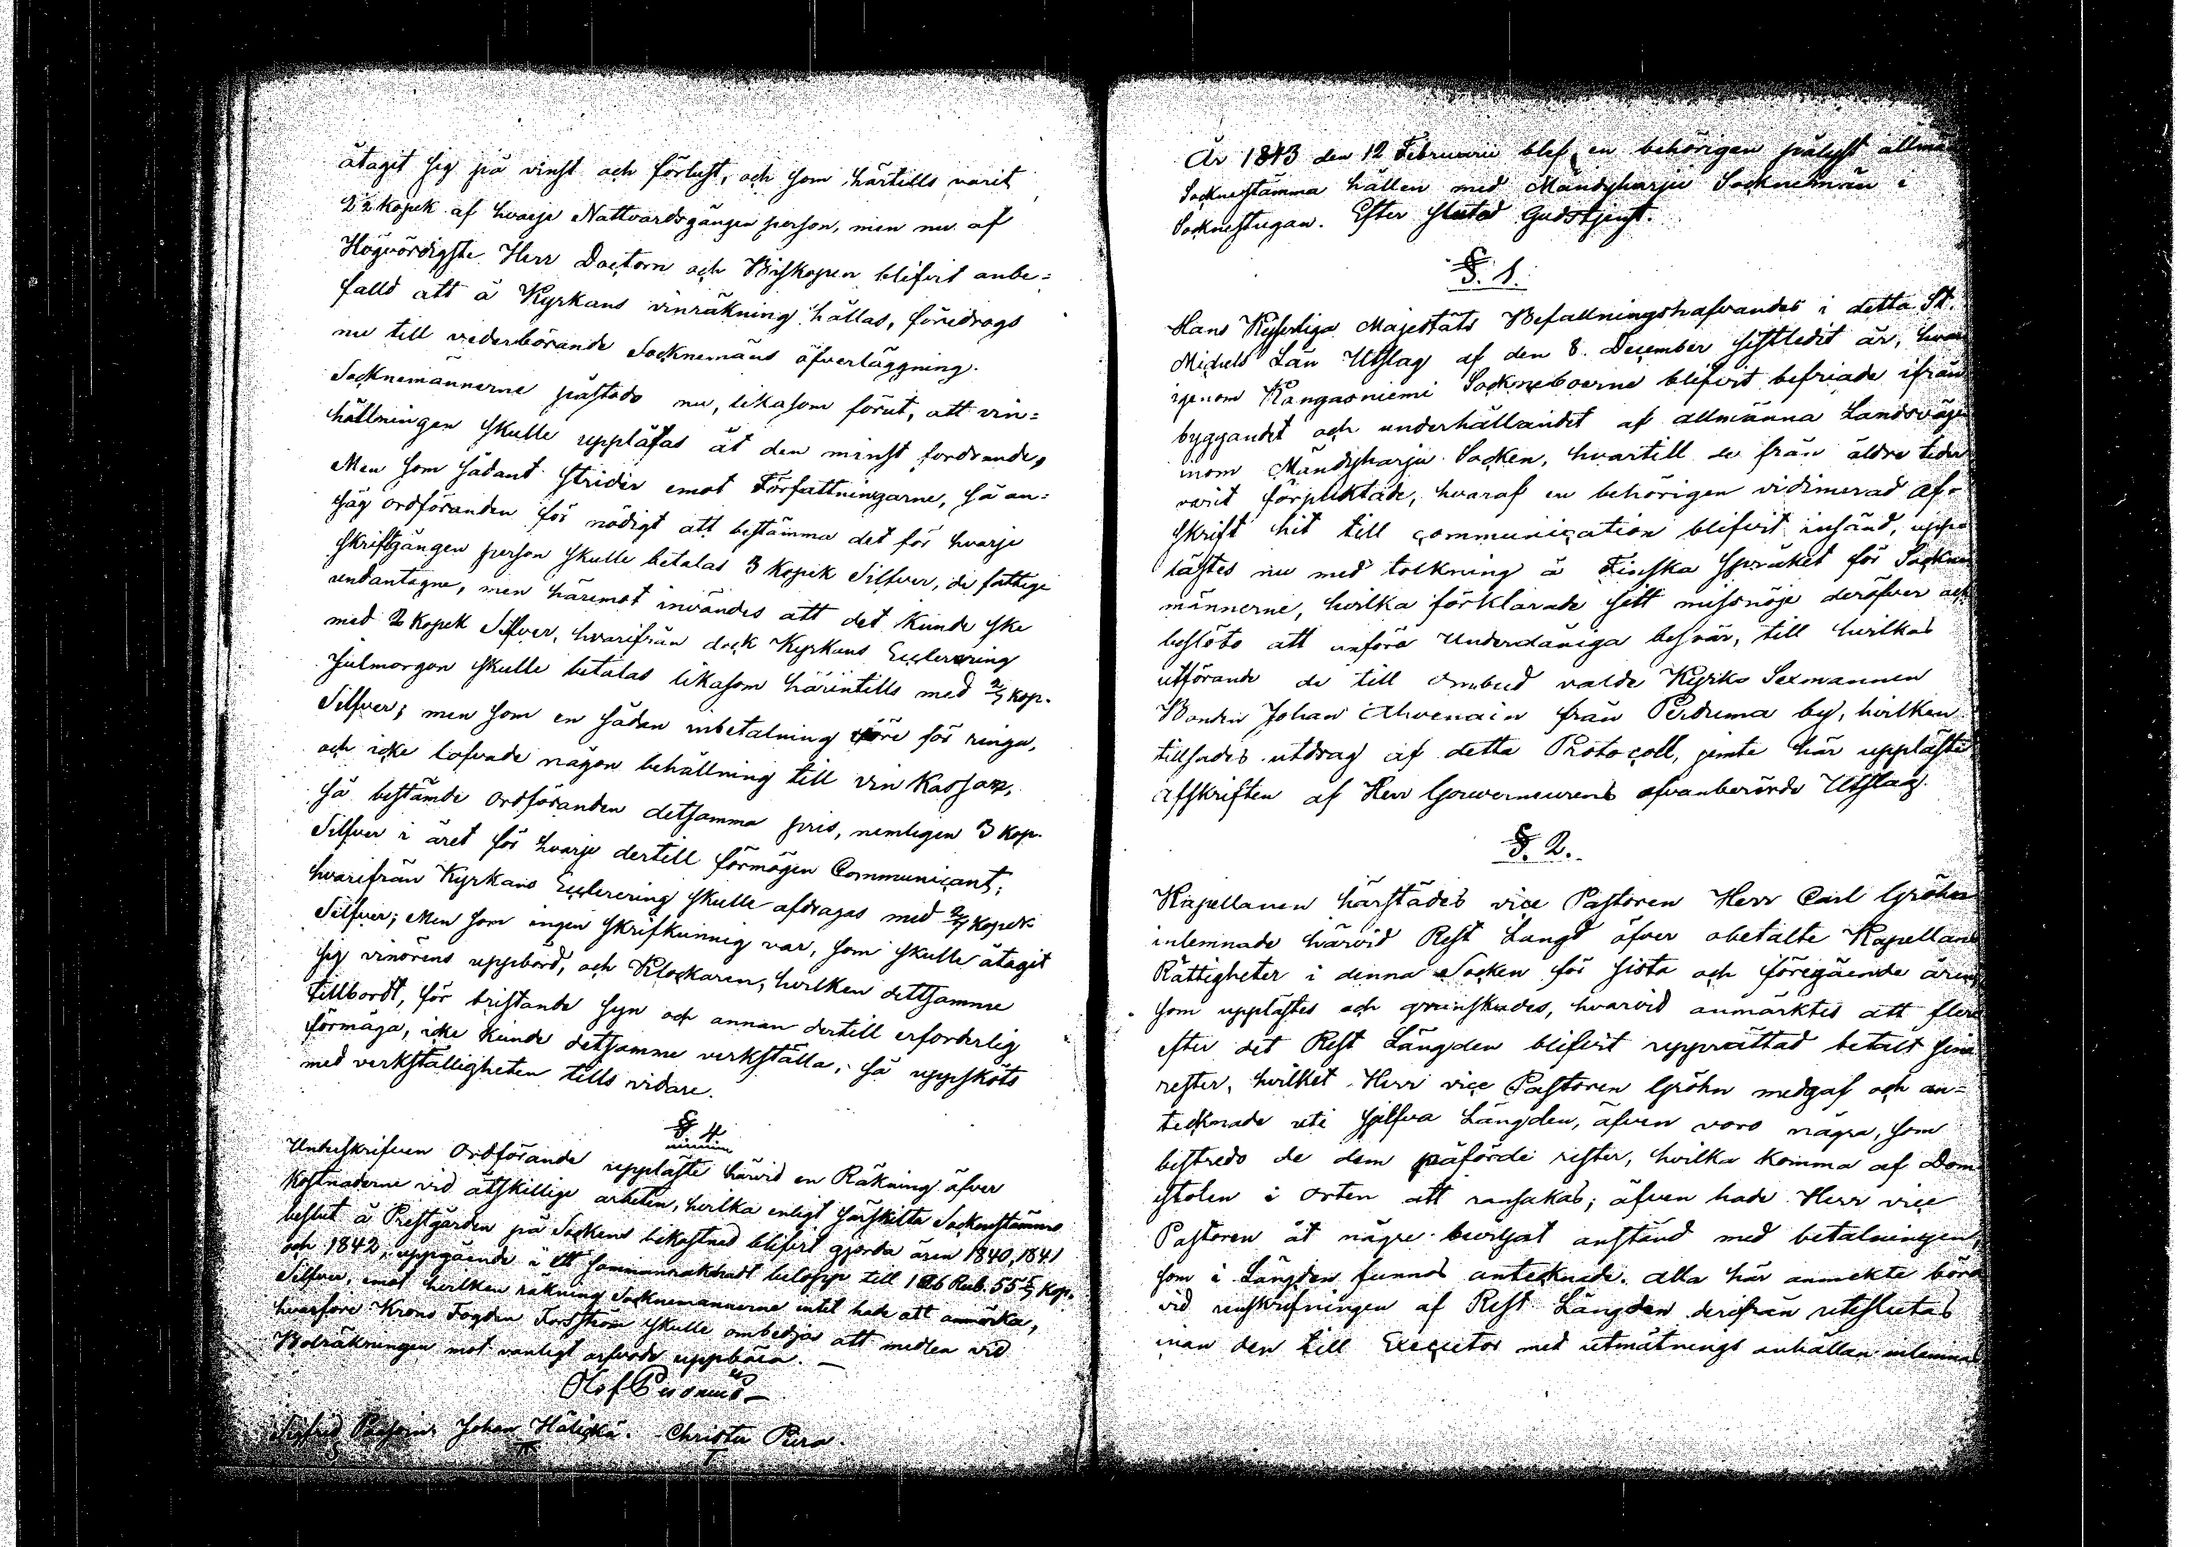 åtagit sig på vinst och förlust, och som härtills varit
2½ kopek af hvarje Nattvardsgången person, men nu af
Högvördigste Herr Doctorn och Biskopen blifvit anbe=
falld att å Kyrkans vinräkning hållas, föredrogs
nu till vederbörande Socknemäns öfverläggning.
Socknemännerne påstodo nu, likasom förut, att vin=
hållningen skulle upplåtas åt den minst fordrande,
Men som sådant strider emot Författningarne, så an=
såg ordföranden för nödigt att bestämma det för hvarje
skriftgången person skulle betalas 3 kopek Silfver, de fattige
undantagne, men häremot invändes att det kunde ske
med 2 kopek Silfver, hvarifrån dock Kyrkans Eclerering
Julmorgon skulle betalas likasom härintills med 2/7 kop.
Silfver; men som en sådan inbetalning vore för ringa,
och icke lofvade någon behållning till vin Kassan,
så bestämde Ordföranden detsamma pris, nemligen 3 kop.
Silfver i året för hvarje dertill förmögen Communicant;
hvarifrån Kyrkans Eclerering skulle afdragas med 2/7 kopek
Silfver; Men som ingen skrifkunnig var, som skulle åtagit
sig vinörens uppbörd, och Klockaren, hvilken dettsamme
tillbordt, för bristande syn och annan dertill erforderlig
förmåga, icke kunde detsamme verkställa, så uppsköts
med verkställigheten tills vidare.
§ 4
Underskrifven Ordförande uppläste härvid en Räkning öfver
kostnaderne vid åtskillige arbeten, hvilka enligt särskilta Sockenstämmo
beslut å Prestgården på Sockens bekostnad blifvit gjorda åren 1840, 1841
och 1842, uppgående i ett sammanräknadt belopp till Rub. 55 kop.
Silfver, emot hvilken räkning Socknemännerne intet hade att anmärka,
hvarföre Krono Fogden Forsström skulle ombedjas att medlen vid
Bolräkningen mot vanligt arfvode uppbära. —
Olof
Sigfrid Johan Christer

År 1843 den 12 Februarii blef en behörigen pålyst allmän
Socknestämma hållen med Mändyharju Socknemän i
Socknestugan. Efter slutad Gudstjenst.
§. 1.
Hans Kejserliga Majestäts Befallningshafvandes i detta St.
Michels Län Utslag af den 8. December sistledit år, hvar
igenom Kangasniemi Sockneboerne blifvit befriade ifrån
byggandet och underhållandet af allmänna Landsvägen
inom Mändyharju Socken, hvartill de från äldre tider
varit förpliktade, hvaraf en behörigen vidimerad af=
skrift hit till communication blifvit insänd, upp=
lästes nu med tolkning å Finska Språket för Sockne
männerne, hvilka förklarade sitt missnöje deröfver och
beslöto att anföra Underdåniga besvär, till hvilkas
utförande de till ombud valde Kyrko Sexmannen
Bonden Johan Ahvenain från Perduma by, hvilken
tillsades utdrag af detta Protocoll, jemte här uppläste
Afskriften af Herr Gouverneurens ofvanberörde Utslag.
§. 2.
Kapellanen härstädes vice Pastoren Herr Carl Gröhn
inlemnade härvid Rest Längd öfver obetalte Kapellans
Rättigheter i denna Socken för sista och föregående åren,
som upplästes och granskades, hvarvid anmärktes att flere
efter det Rest Längden blifvit upprättad betalt sina
rester, hvilket Herr vice Pastoren Gröhn medgaf och an=
tecknade uti sjelfva Längden, äfven voro några, som
bestredo de dem påförde rester, hvilka komma af Dom
stolen i orten att ransakas; äfven hade Herr vice
Pastoren åt någre beviljat anstånd med betalningen,
som i Längden funnos antecknade. Alla här anmärkte böra
vid renskrifningen af Rest Längden derifrån uteslutas
innan den till Executor med utmätnings anhållan inlemnas